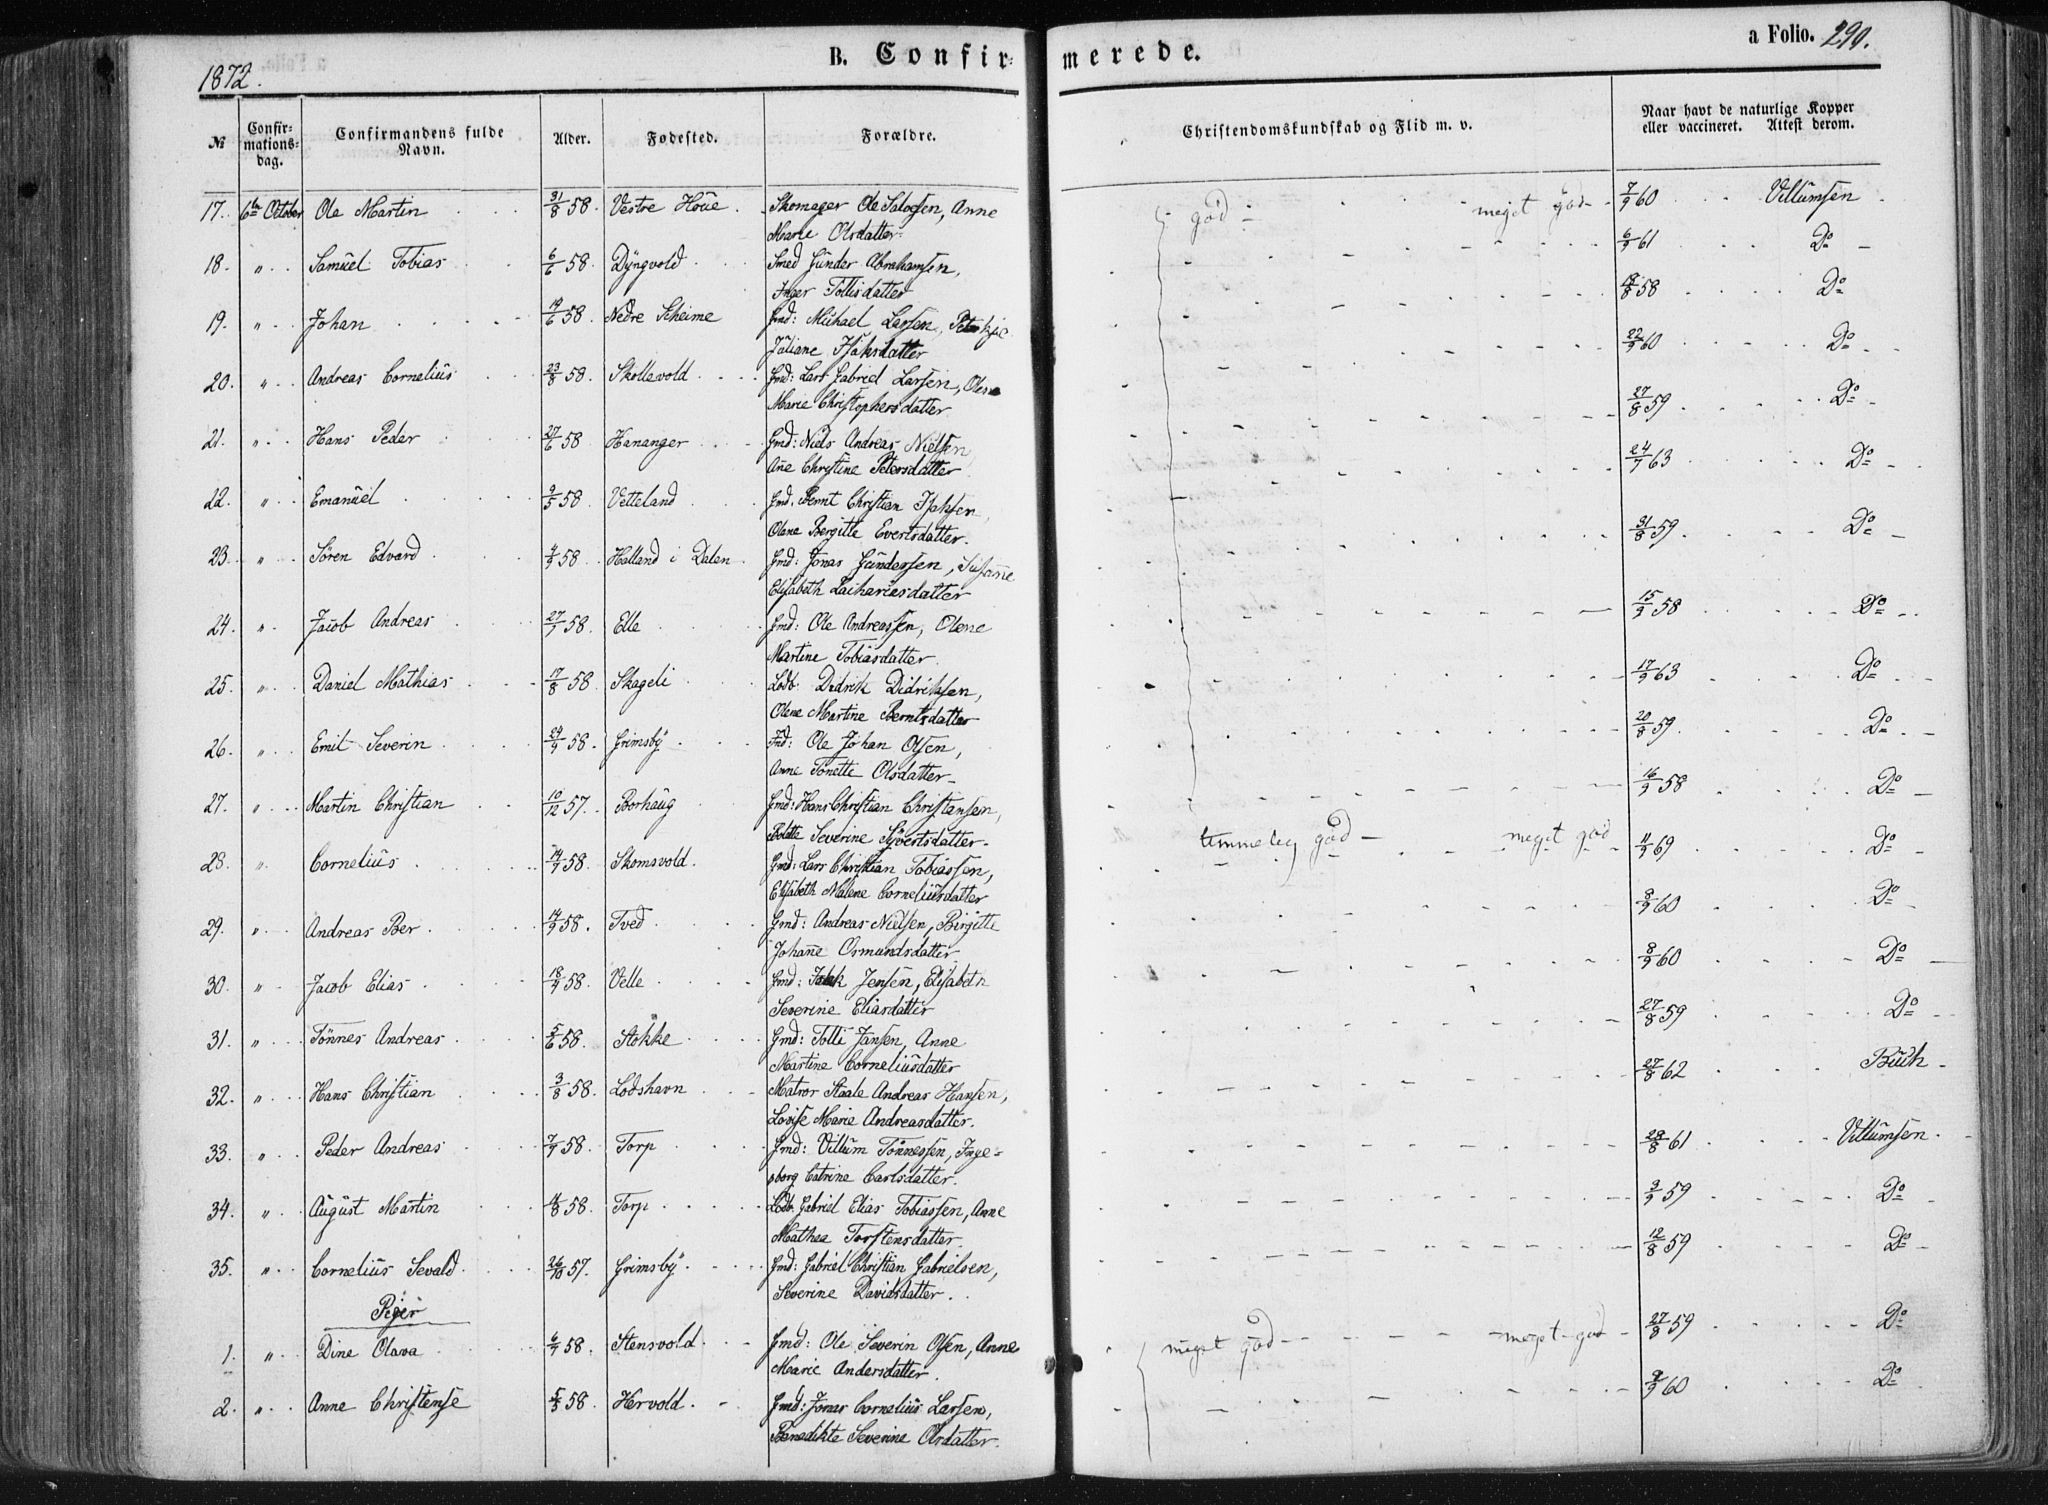 1872.
B. Confirmerede.
a Folio. 290.
№ Confirmationsdag. Confirmandens fulde Navn. Alder. Fødested. Forældre. Christendomskundskab og Flid m. v. Naar havt de naturlige Kopper eller vaccineret. Attest derom.
17. 6te October Ole Martin 31/8 58 Vestre Houe Skomager Ole Salvesen, Anne god meget god 7/9 60 Villumsen
Marie Olsdatter
18. " Samuel Tobias 6/6 58. Dyngvold Smed Gunder Abrahamsen, 6/9 61 Do
Inger Tollisdatter
19. " Johan 19/6 58. Nedre Skeime Gmd: Michael Larsen, 18/8 58 Do
Juliane Isaksdatter
20. " Andreas Cornelius 23/8 58. Skollevold Gmd: Lars Gabriel Larsen, Olene 22/9 60 Do
Marie Christophersdatter
21. " Hans Peder 27/6 58 Hananger Gmd: Niels Andreas Nielsen 27/8 59. Do
Ane Christine Petersdatter
22. " Emanuel 9/5 58. Vetteland Gmd. Bernt Christian Isaksen, 24/7 63 Do
Olene Bergitte Evertsdatter.
23. " Søren Edvard 4/9 58 Helland i Dalen Gmd: Jonas Gundersen, Susanne 31/8 59. Do
Elisabeth Zachariasdatter
24. " Jacob Andreas 27/7 58. Elle Gmd: Ole Andreassen, Olene 15/9 58 Do
Martine Tobiasdatter.
25. " Daniel Mathias 17/8 58 Skageli Lods. Didrik Didriksen, 17/9 63 Do
Olene Martine Berntsdatter
26. " Emil Severin 29/9 58. Grimsby Ind: Ole Johan Olsen, 20/8 59. Do
Anne Tonette Olsdatter
27. " Martin Christian 10/12 57. Borhaug Gmd: Hans Christian Christansen, 16/9 58 Do
Bolette Severine Syvertsdatter.
28. " Cornelius 14/7 58. Skomsvold. Gmd: Lars Christian Tobiassen, temmelig god meget god 11/9 69 Do
Elisabeth Malene Corneliusdatter
29. " Andreas Ber 14/9 58. Tved Gmd: Andreas Nielsen, Birgitte 8/9 60 Do
Johanne Osmundsdatter
30. " Jacob Elias 18/9 58. Velle Gmd: Jensen, Elisabeth 8/9 60 Do
Severine Eliasdatter
31. " Tønnes Andreas 5/6 58. Stokke Gmd: Tolli Jansen, Anne 27/8 59 Do
Martine Corneliusdatter
32. " Hans Christian 3/8 58. Lodshavn Matros Staale Andreas Hansen, 27/8 62 Buch
Lovise Marie Andreasdatter.
33. " Peder Andreas 7/9 58. Torp Gmd: Villum Tønnessen, Inge- 28/8 61 Villumsen
borg Catrine Carlsdatter.
34. " August Martin 14/8 58. Torp Lods. Gabriel Elias Tobiassen, Anne 3/9 59 Do
Mathea Torstensdatter.
35. " Cornelius Sevald 26/10 57. Grimsby Gmd: Gabriel Christian Gabrielsen, 12/8 59 Do
Severine Davidsdatter.
Piger
1. " Dine Olava 6/7 58. Stensvold Gmd: Ole Severin Olsen, Anne meget god meget god 27/8 59 Do
Marie Andersdatter.
2. " Anne Christense 5/5 58. Hervold. Gmd: Jonas Cornelius Larsen, 9/9 60 Do
Benedikte Severine Olsdatter.